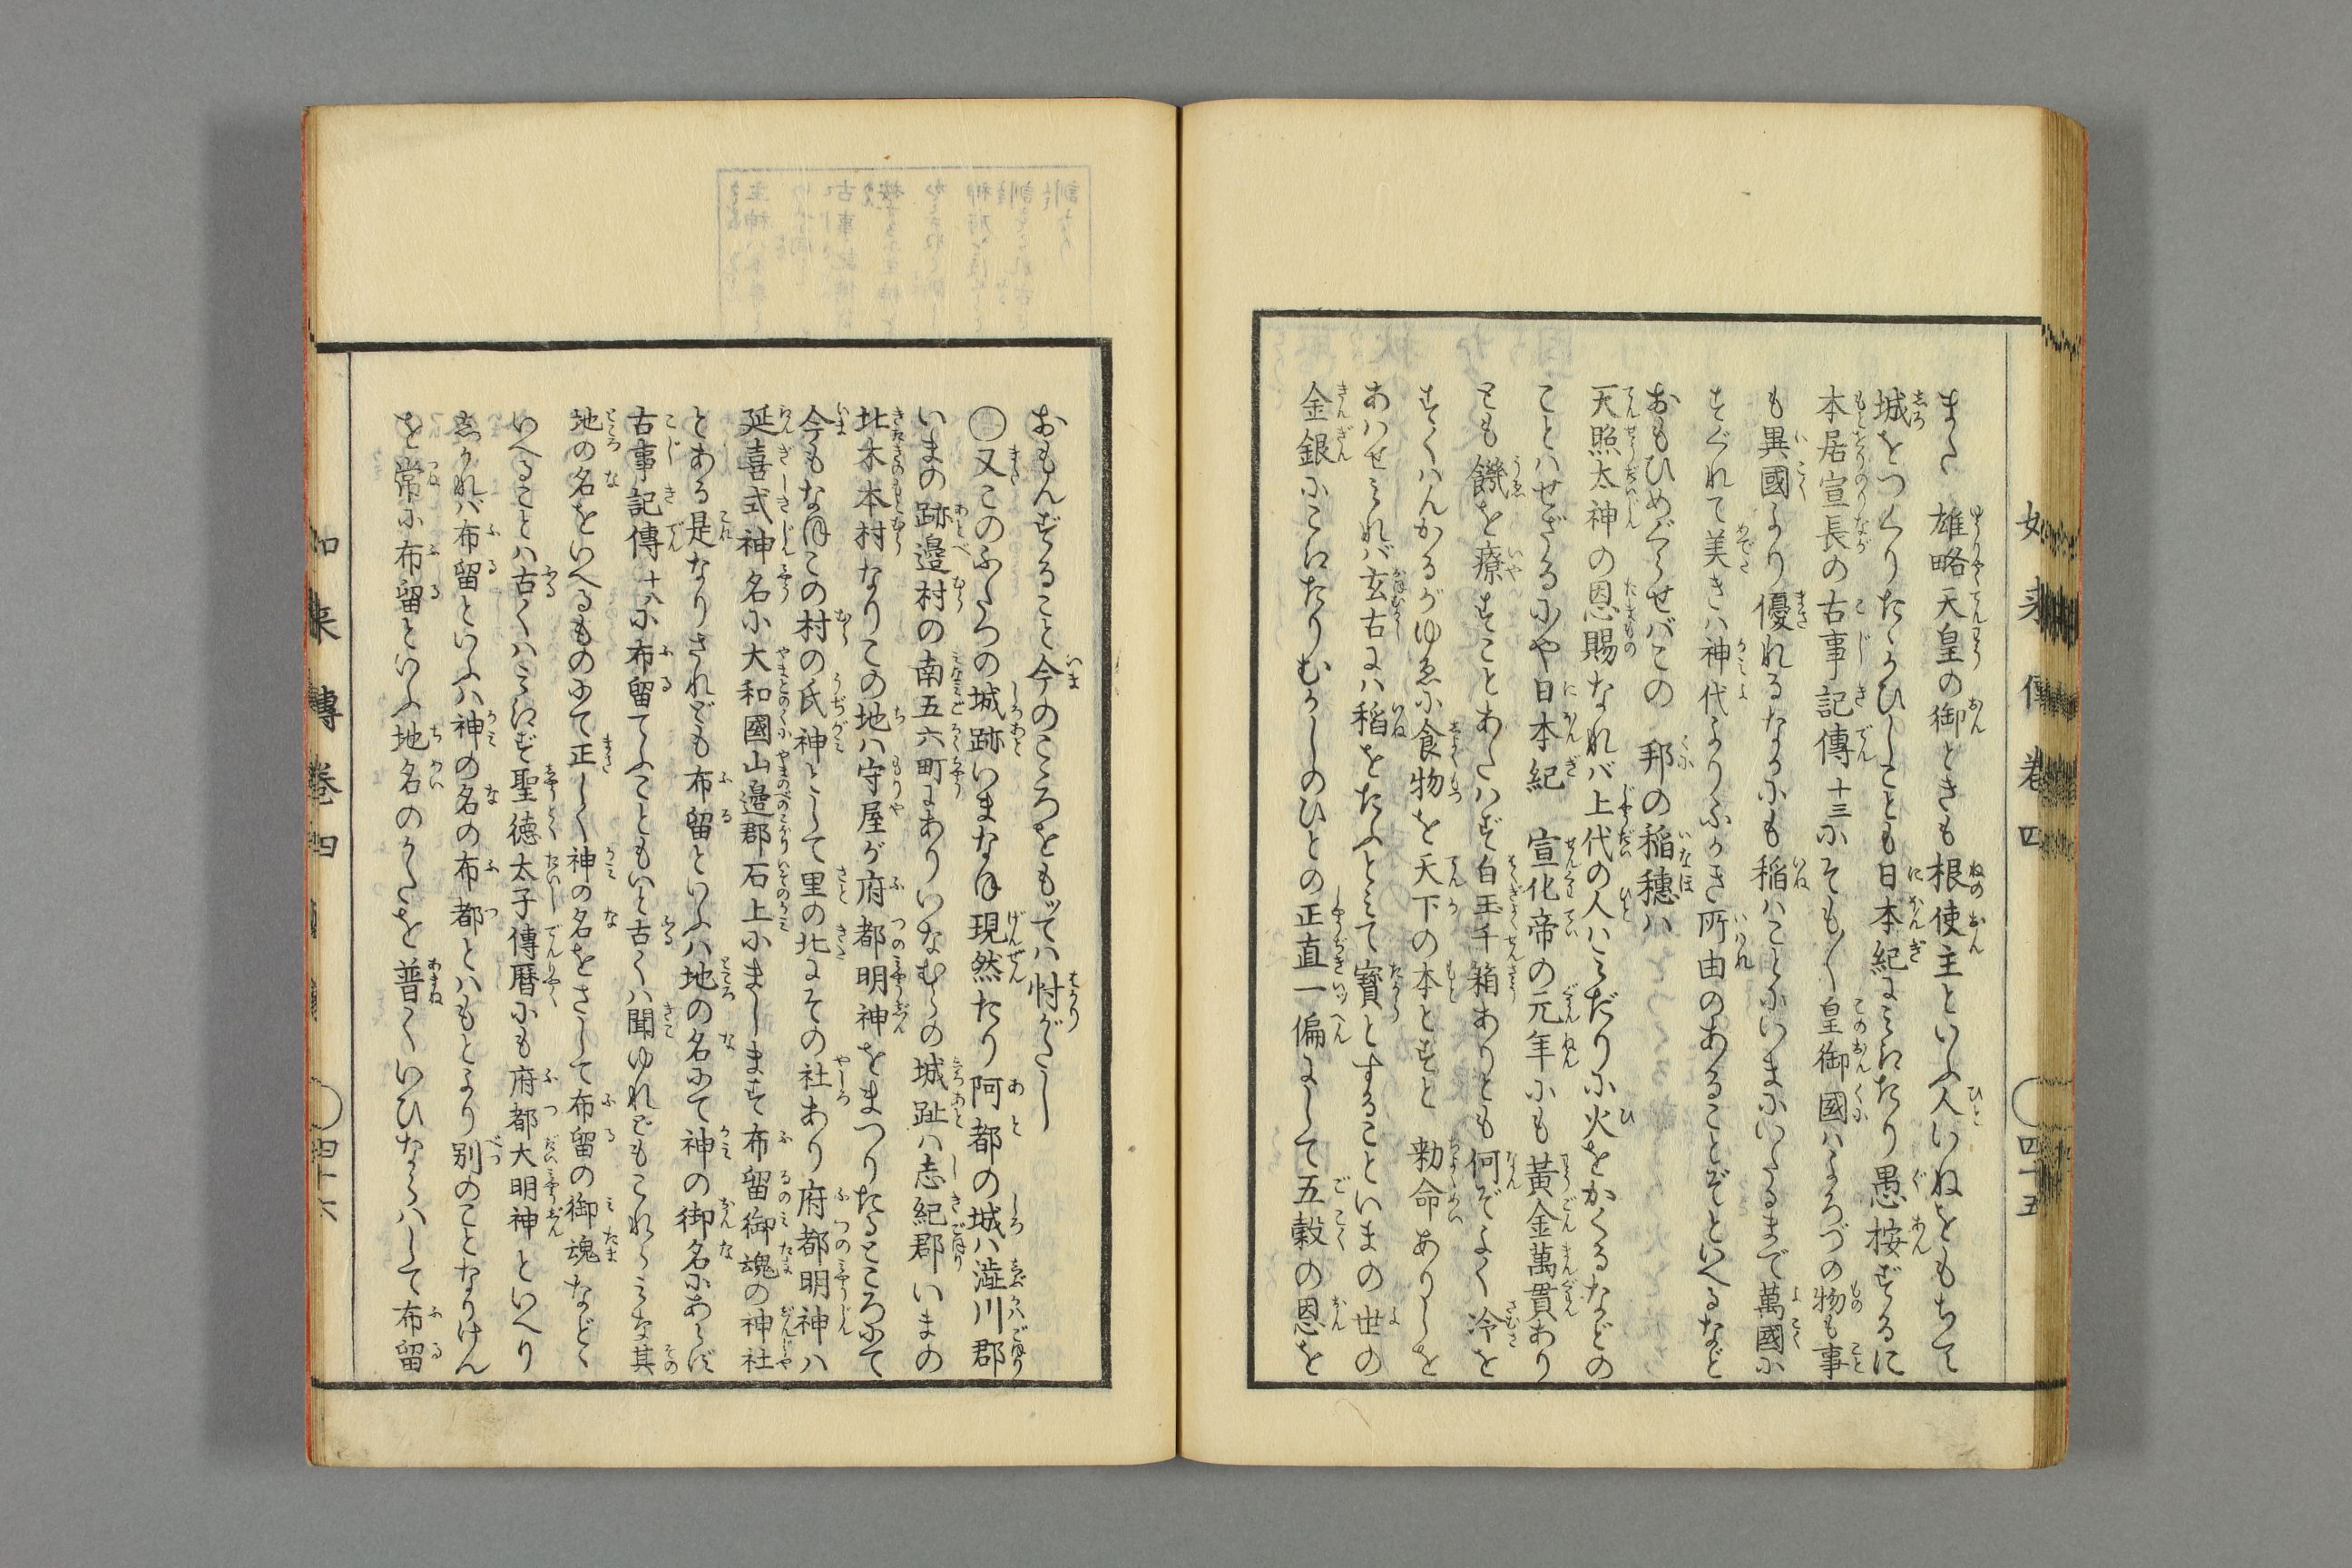 また　雄略天皇の御ときも根使主といふ人いねをもちて
城をつくりたゝかひしことも日本紀にみえたり愚按ずるに
本居宣長の古事記傳十三にそも〳〵皇御國ハよろづの物も事
も異國より優れるなかにも稲ハことにいまにいたるまで萬國に
すぐれて美きハ神代よりふかき所由のあることぞといへるなど
おもひめぐらせバこの　邦の稲穂ハ
天照太神の恩賜なれバ上代の人ハみだりに火をかくるなどの
ことハせざるにや日本紀　宣化帝の元年にも黄金萬貫あり
とも饑を療すことあたハず白玉千箱ありとも何ぞよく冷を
すくハんかるがゆゑに食物を天下の本とすと　勅命ありしを
あハせみれバ玄古にハ稲をたふとみて寳とすることいまの世の
金銀にこえたりむかしのひとの正直一偏にして五穀の恩を
如来傳巻四　四十五
おもんずること今のこゝろをもッてハ忖がたし
〇又このふたつの城跡いまなほ現然たり阿都の城ハ澁川郡
いまの跡邉村の南五六町にありいなむらの城趾ハ志紀郡いまの
北木本村なりこの地ハ守屋が府都明神をまつりたるところにて
今もなほこの村の氏神として里の北にその社あり府都明神ハ
延喜式神名に大和國山邉郡石上にまします布留御魂の神社
とある是なりされども布留といふハ地の名にて神の御名にあらず
古事記傳十八に布留てふこともいと古く聞ゆれどもこれらみな其
地の名をいへるものにて正しく神の名をさして布留の御魂などゝ
いへることハ古くハみえず聖徳太子傳暦にも府都大明神といへり
志かれバ布留といふハ神の名の布都とハもとより別のことなりけん
を常に布留といふ地名のかたを普くいひならハして布留
如来傳巻四　四十六